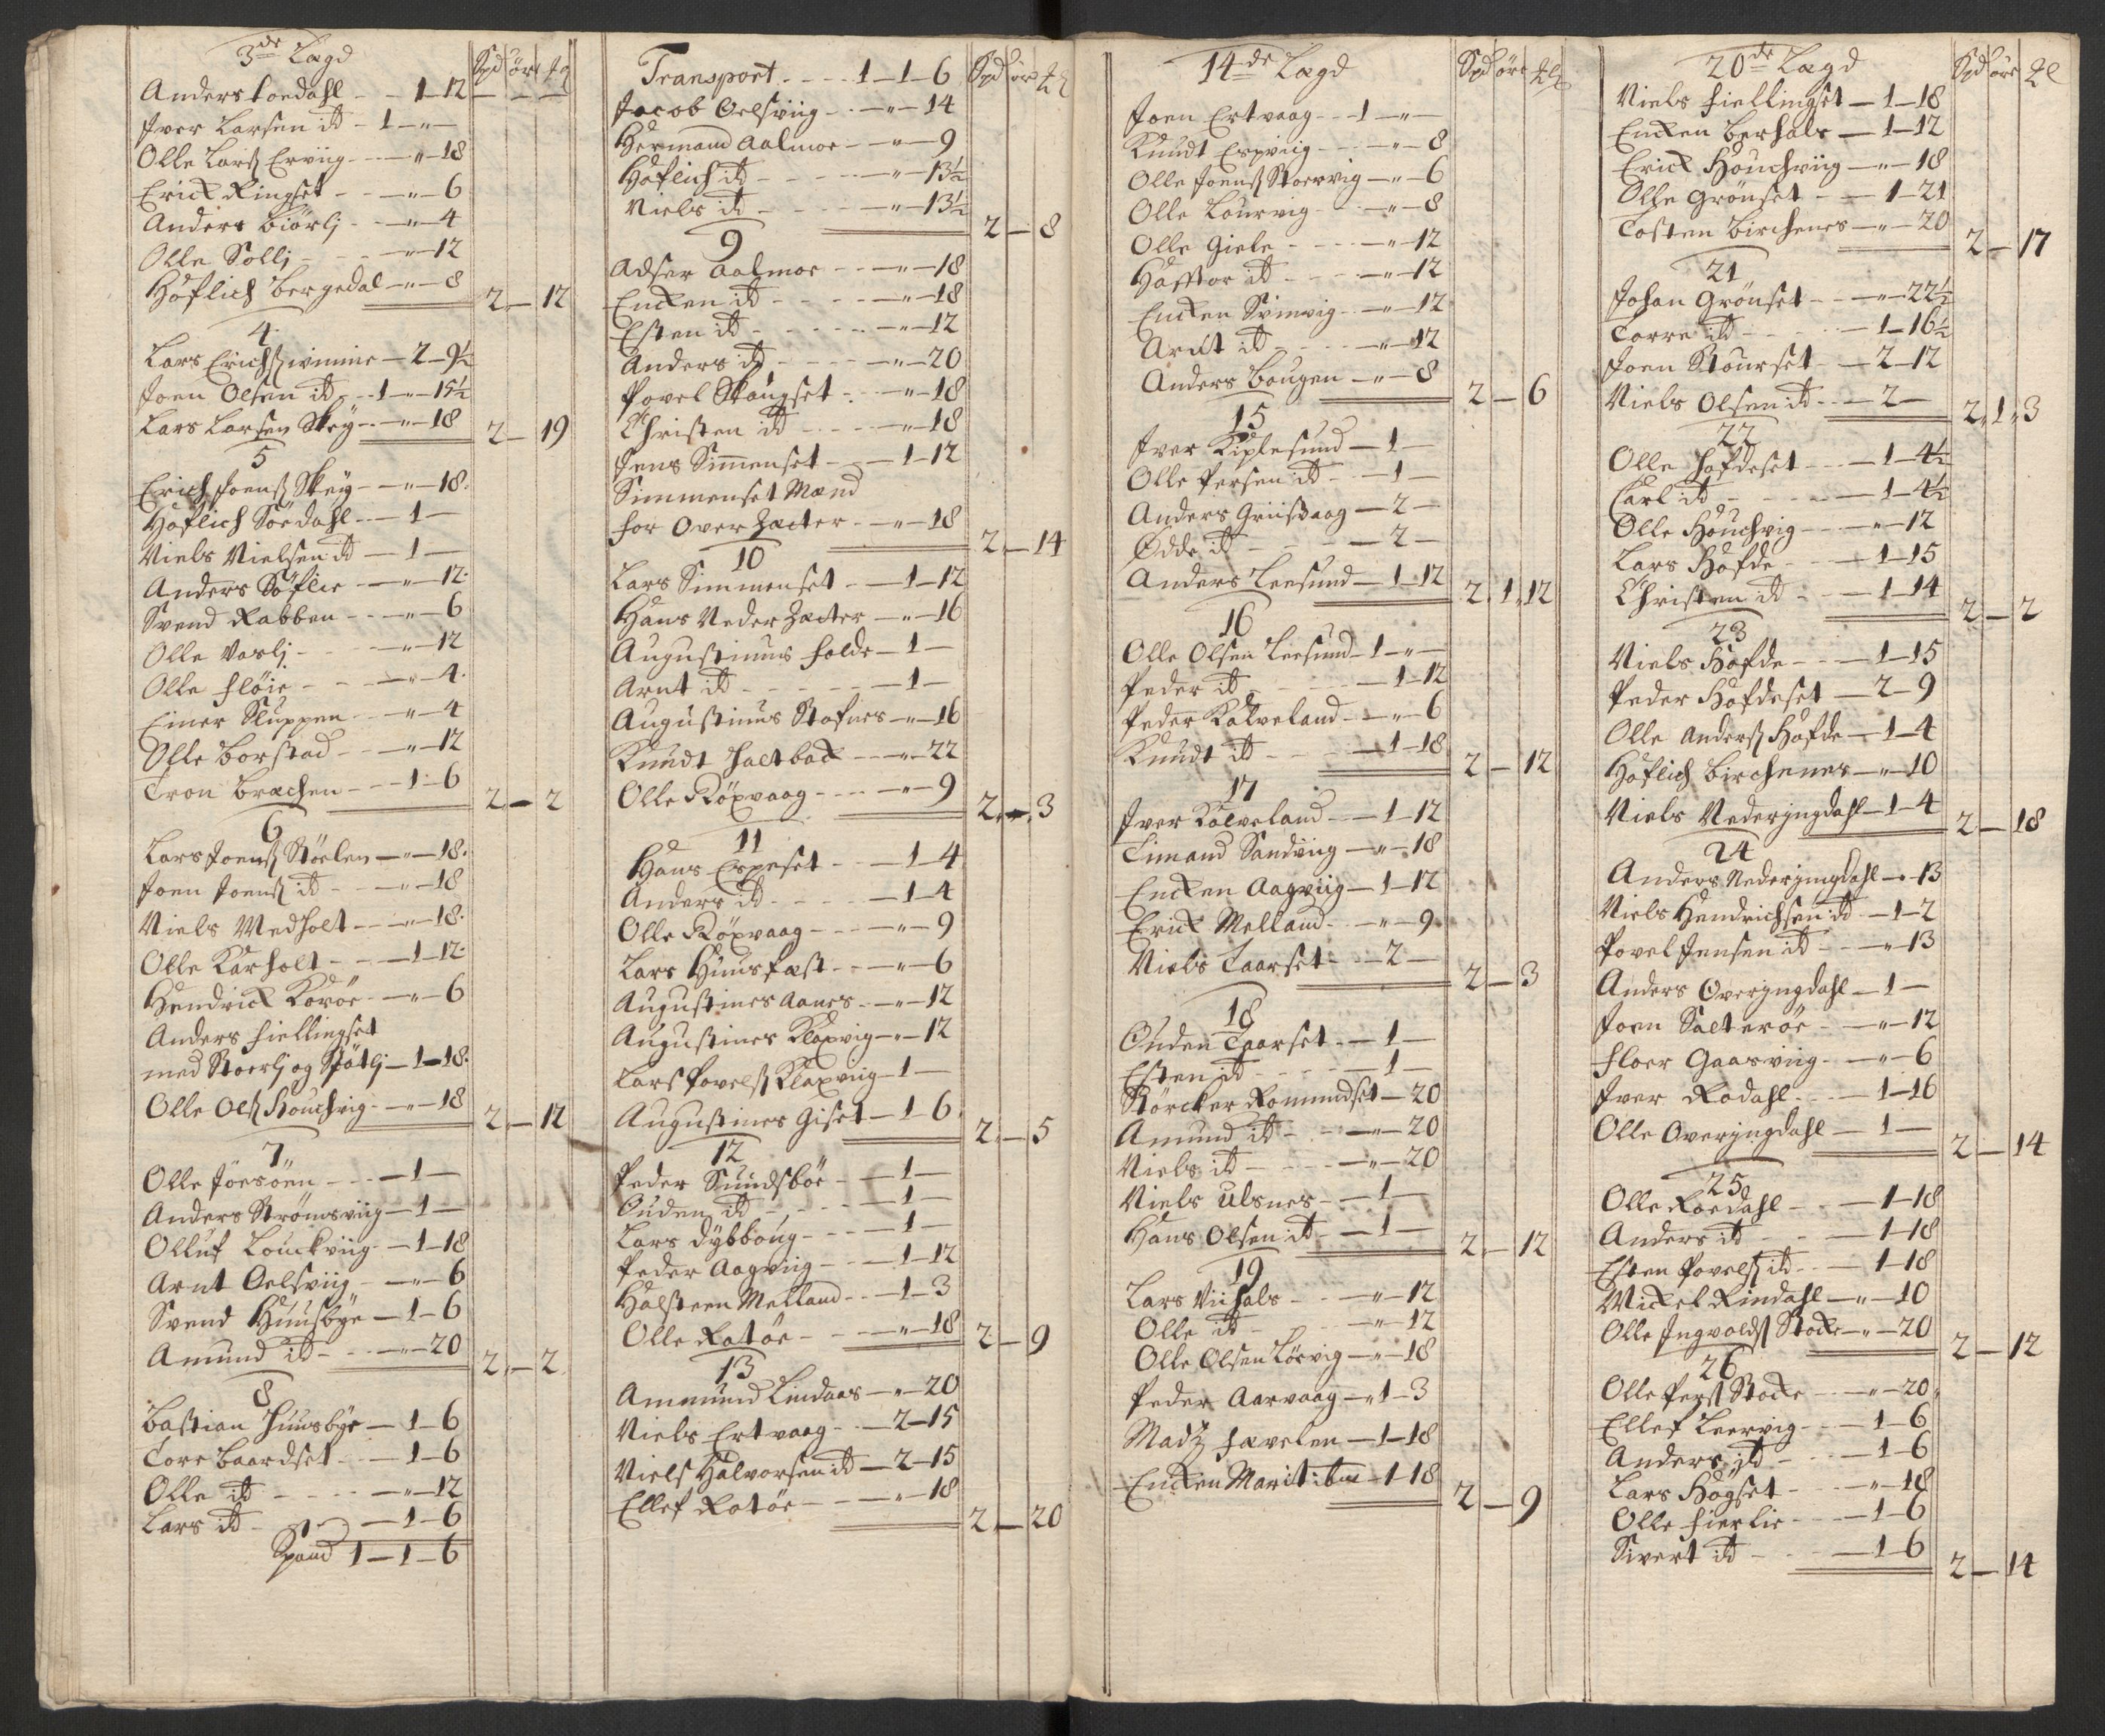 3de Lægd
Spd øre ℔
Anders foedahl - - 1-12
Iver Larsen id - 1 - " -
Olle Larß Erviig - - " - 18
Erick Ringset - - " - 6
Anders biörlj - - " - 4
Olle Sollj - - " - 12
Höflich bergedal - " - 8
2 - 12
4
Lars Erichß winnie - 2 - 9½
Joen Olsen id - 1 - " - 15½
Lars Larsen Skey - " - 18
2 - 19
5
Erich Joenß Skey - " - 18
Höflich Söedahl - 1 -
Niels Nielsen id - 1 -
Anders Söflie - " - 12
Svend Rabben - - " - 6
Olle Vaslj - - " - 12
Olle fløie - - " - 4
Einer Sluppen - - " - 4
Olle borstad - - " - 12
Tron bræchen - - 1 - 6
2 - 2
6
Lars Joenß Stöelen - " - 18
Joen Joenß id - - " - 18
Niels Medholt - - " - 18
Olle Karholt - - 1 - 12
Hendrick Koröe - " - 6
Anders fiellingset
med Stoerlj og Spötlj - 1 - 18
Olle Olß Houchvig - " - 18
2 - 12
7
Olle föesöen - - 1 -
Anders Strömsviig - 1 -
Olluf Louckviig - 1 - 18
Arnt Oelsviig - " - 6
Svend Huusbye - 1 - 6
Amund id - - " - 20
2 - 2
8
Bastian Huusbye - 1 - 6
Tore baardset - - 1 - 6
Olle id - - " - 12
Lars id - - 1 - 6
Spand 1 - 1 - 6
Transport - - 1 - 1 - 6
Spd øre ℔
Jacob Oelsviig - " - 14
Hermand Aalmoe - " - 9
Höflich id - - " - 13½
Niels id - - " - 13½
2 - 8
9
Adser Aalmoe - - " - 18
Encken id - - " - 18
Esten id - - " - 12
Anders id - - " - 20
Povel Skougset - " - 18
Christen id - - " - 18
Jens Simmenset - 1 - 12
Simmenset Mænd
for Over Zæter - " - 18
2 - 14
10
Lars Simmenset - 1 - 12
Hans Neder Zæter - " - 16
Augustinus folde - 1 -
Arnt id - - 1 -
Augustinus Stafnes - " - 16
Knudt Haltback - " - 22
Olle Röxvaag - - " - 9
2 - 3
11
Hans Espeset - 1 - 4
Anders id - - 1 - 4
Olle Röxvaag - - " - 9
Lars Huusfæst - " - 6
Augustines Aanes - " - 12
Augustines Klaxvig - " - 12
Lars Povelß Klaxviig 1 -
Augustines Giset - 1 - 6
2 - 5
12
Peder Sundsböe - 1 -
Ouden id - - 1 -
Lars Dybboug - - 1 -
Peder Aagviig - - 1 - 12
Halsteen Melland - 1 - 3
Olle Ratöe - - " - 18
2 - 9
13
Ammund Lindaas - " - 20
Niels Ertvaag - 2 - 15
Niels Halvorsen id - 2 - 15
Ellef Ratöe - - " - 18
2 - 20
14de Lægd
Spd øre ℔
Joen Ertvaag - 1 - " -
Knudt Espviig - - " - 8
Olle Joenß Stoervig - " - 6
Olle Lourvig - - " - 8
Olle Giele - - " - 12
Haftor id - - " - 12
Encken Svinvig - " - 12
Arnt id - - " - 12
Anders bougen - " - 8
2 - 6
15
Iver Kiplesund - 1 -
Olle Persen id - 1 -
Anders Griisvaag - 2 -
Odde id - - 2 -
Anders Leesund - 1 - 12
2 1 12
16
Olle Olsen Leesund - 1 - " -
Peder id - - 1 - 12
Peder Kalveland - " - 6
Knudt id - - 1 - 18
2 - 12
17
Iver Kalveland - 1 - 12
Timand Sandviig - " - 18
Encken Aagviig - 1 - 12
Erick Melland - " - 9
Niels Taarset - 2 -
2 - 3
18
Ouden Taarset - 1 -
Esten id - - 1 -
Störcker Romundset - 20
Amund id - - " - 20
Niels id - - " - 20
Niels Ulsnes - 1 -
Hans Olsen id - 1 -
2 - 12
19
Lars Viihals - - " - 12
Olle id - - " - 12
Olle Olsen Löevig - " - 18
Peder Aarvaag - " 1 - 3
Madtz fævelen - 1 - 18
Encken Marit ibm - 1 - 18
2 - 9
20de Lægd
Spd øre ℔
Niels fiellingset - 1 - 18
Encken berhals - 1 - 12
Erick Houchviig - " - 18
Olle Grönset - - 1 - 21
Tosten birchenes - " - 20
2 - 17
21
Johan Grönset - - " - 22½
Torre id - - 1 - 16½
Joen Stourset - 2 - 12
Niels Olsen id - 2 -
2 1 3
22
Olle Hofdeset - - 1 - 4½
Carl id - - 1 - 4½
Olle Houchvig - - " - 12
Lars Hofde - - 1 - 15
Christen id - - 1 - 14
2 - 2
23
Niels Hofde - - 1 - 15
Peder Hofdeset - 2 - 9
Olle Anderß Hofde - 1 - 4
Höflich birchenes - " - 10
Niels Nederjngdahl - 1 - 4
2 - 18
24
Anders Nederjngdahl - " 13
Niels Hendrichsen id - 1 - 2
Povel Jensen id - " - 13
Anders Overjngdahl - 1 -
Joen Salteröe - - " - 12
Floer Gaasviig - " - 6
Iver Rodahl - - 1 - 16
Olle Overjngdahl - 1 -
2 - 14
25
Olle Roedahl - - 1 - 18
Anders id - - 1 - 18
Esten Povelß id - - 1 - 18
Mickel Rindahl - " - 10
Olle Ingvoldß Stocke - " - 20
2 - 12
26
Olle Perß Stocke - " - 20
Ellef Leervig - - 1 - 6
Anders id - - 1 - 6
Lars Högset - - " - 18
Olle fierlie - - 1 - 6
Sivert id - - 1 - 6
2 - 14